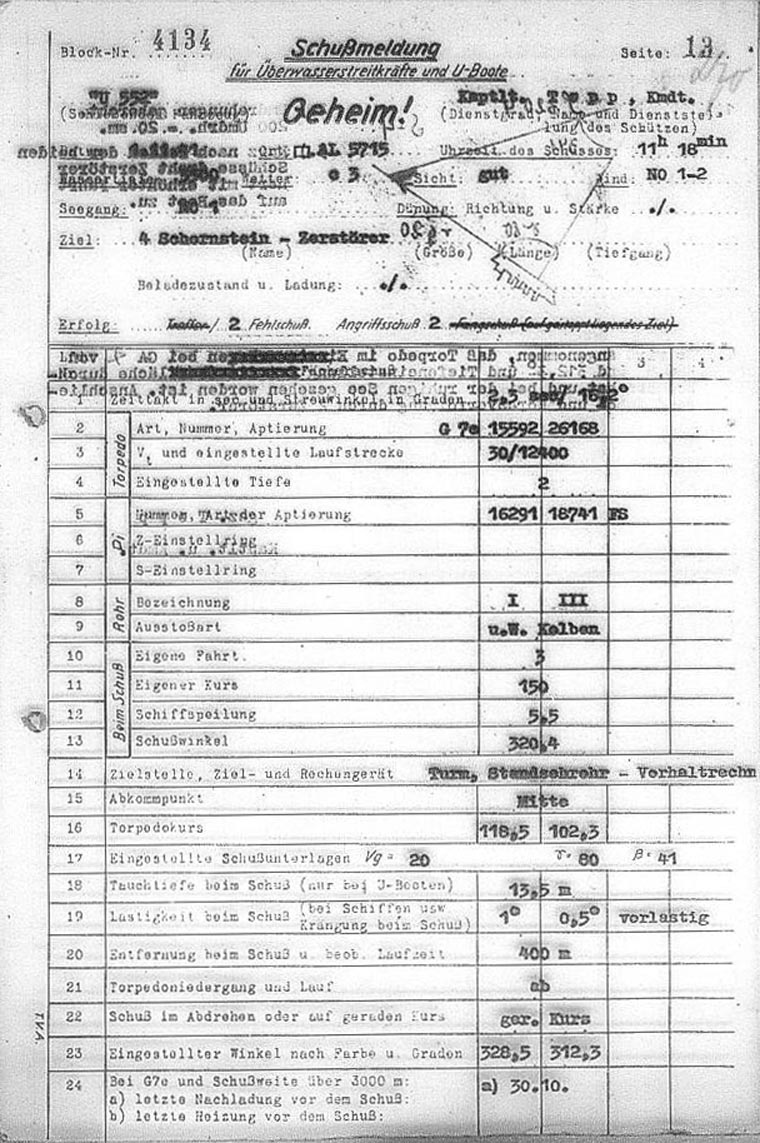 Block-Nr. 4134
Schußmeldung
Seite: 13
für Überwasserstreitkräfte und U-Boote
"U 552"
Geheim!
Kaptlt. Topp, Kmdt.
(Dienstgrad, Name und Dienststel-
lung des Schützen)
AL 5715
Uhrzeit des Schusses: 11h 18min
Wetter: c 3
Sicht: gut
Wind: NO 1-2
Seegang:
Dünung: Richtung u. Stärke ./.
Ziel: 4 Schornstein - Zerstörer
(Name) (Größe) (Länge) (Tiefgang)
Beladezustand u. Ladung: ./.
Erfolg: Treffer / 2 Fehlschuß. Angriffsschuß 2 Fangschuß (auf gestoppt liegendes Ziel)
Lfde 3 4
1 Zeittakt in sec und Streuwinkel in Graden
2 Art, Nummer, Aptierung G 7e 15592 26168
Torpedo
3 Vt und eingestellte Laufstrecke 30/12400
4 Eingestellte Tiefe 2
5 Nummer, Art der Aptierung 16291 18741 FS
Pi
6 Z-Einstellring
7 S-Einstellring
8 Bezeichnung I III
Rohr
9 Ausstoßart u.W. Kolben
10 Eigene Fahrt. 3
Beim Schuß
11 Eigener Kurs 150
12 Schiffspeilung 5,5
13 Schußwinkel 320,4
14 Zielstelle, Ziel- und Rechengerät Turm, Standsehrohr - Vorhaltrechn
15 Abkommpunkt Mitte
16 Torpedokurs 118,5 102,3
17 Eingestellte Schußunterlagen Vg = 20 γ = 80 β = 41
18 Tauchtiefe beim Schuß (nur bei U-Booten) 13,5 m
19 Lastigkeit beim Schuß (bei Schiffen usw Krängung beim Schuß) 1° 0,5° vorlastig
20 Entfernung beim Schuß u. beob. Laufzeit 400 m
21 Torpedoniedergang und Lauf ab
22 Schuß im Abdrehen oder auf geraden Kurs ger. Kurs
23 Eingestellter Winkel nach Farbe u. Graden 328,5 312,3
24 Bei G7e und Schußweite über 3000 m:
a) letzte Nachladung vor dem Schuß: a) 30.10.
b) letzte Heizung vor dem Schuß:
TVA.